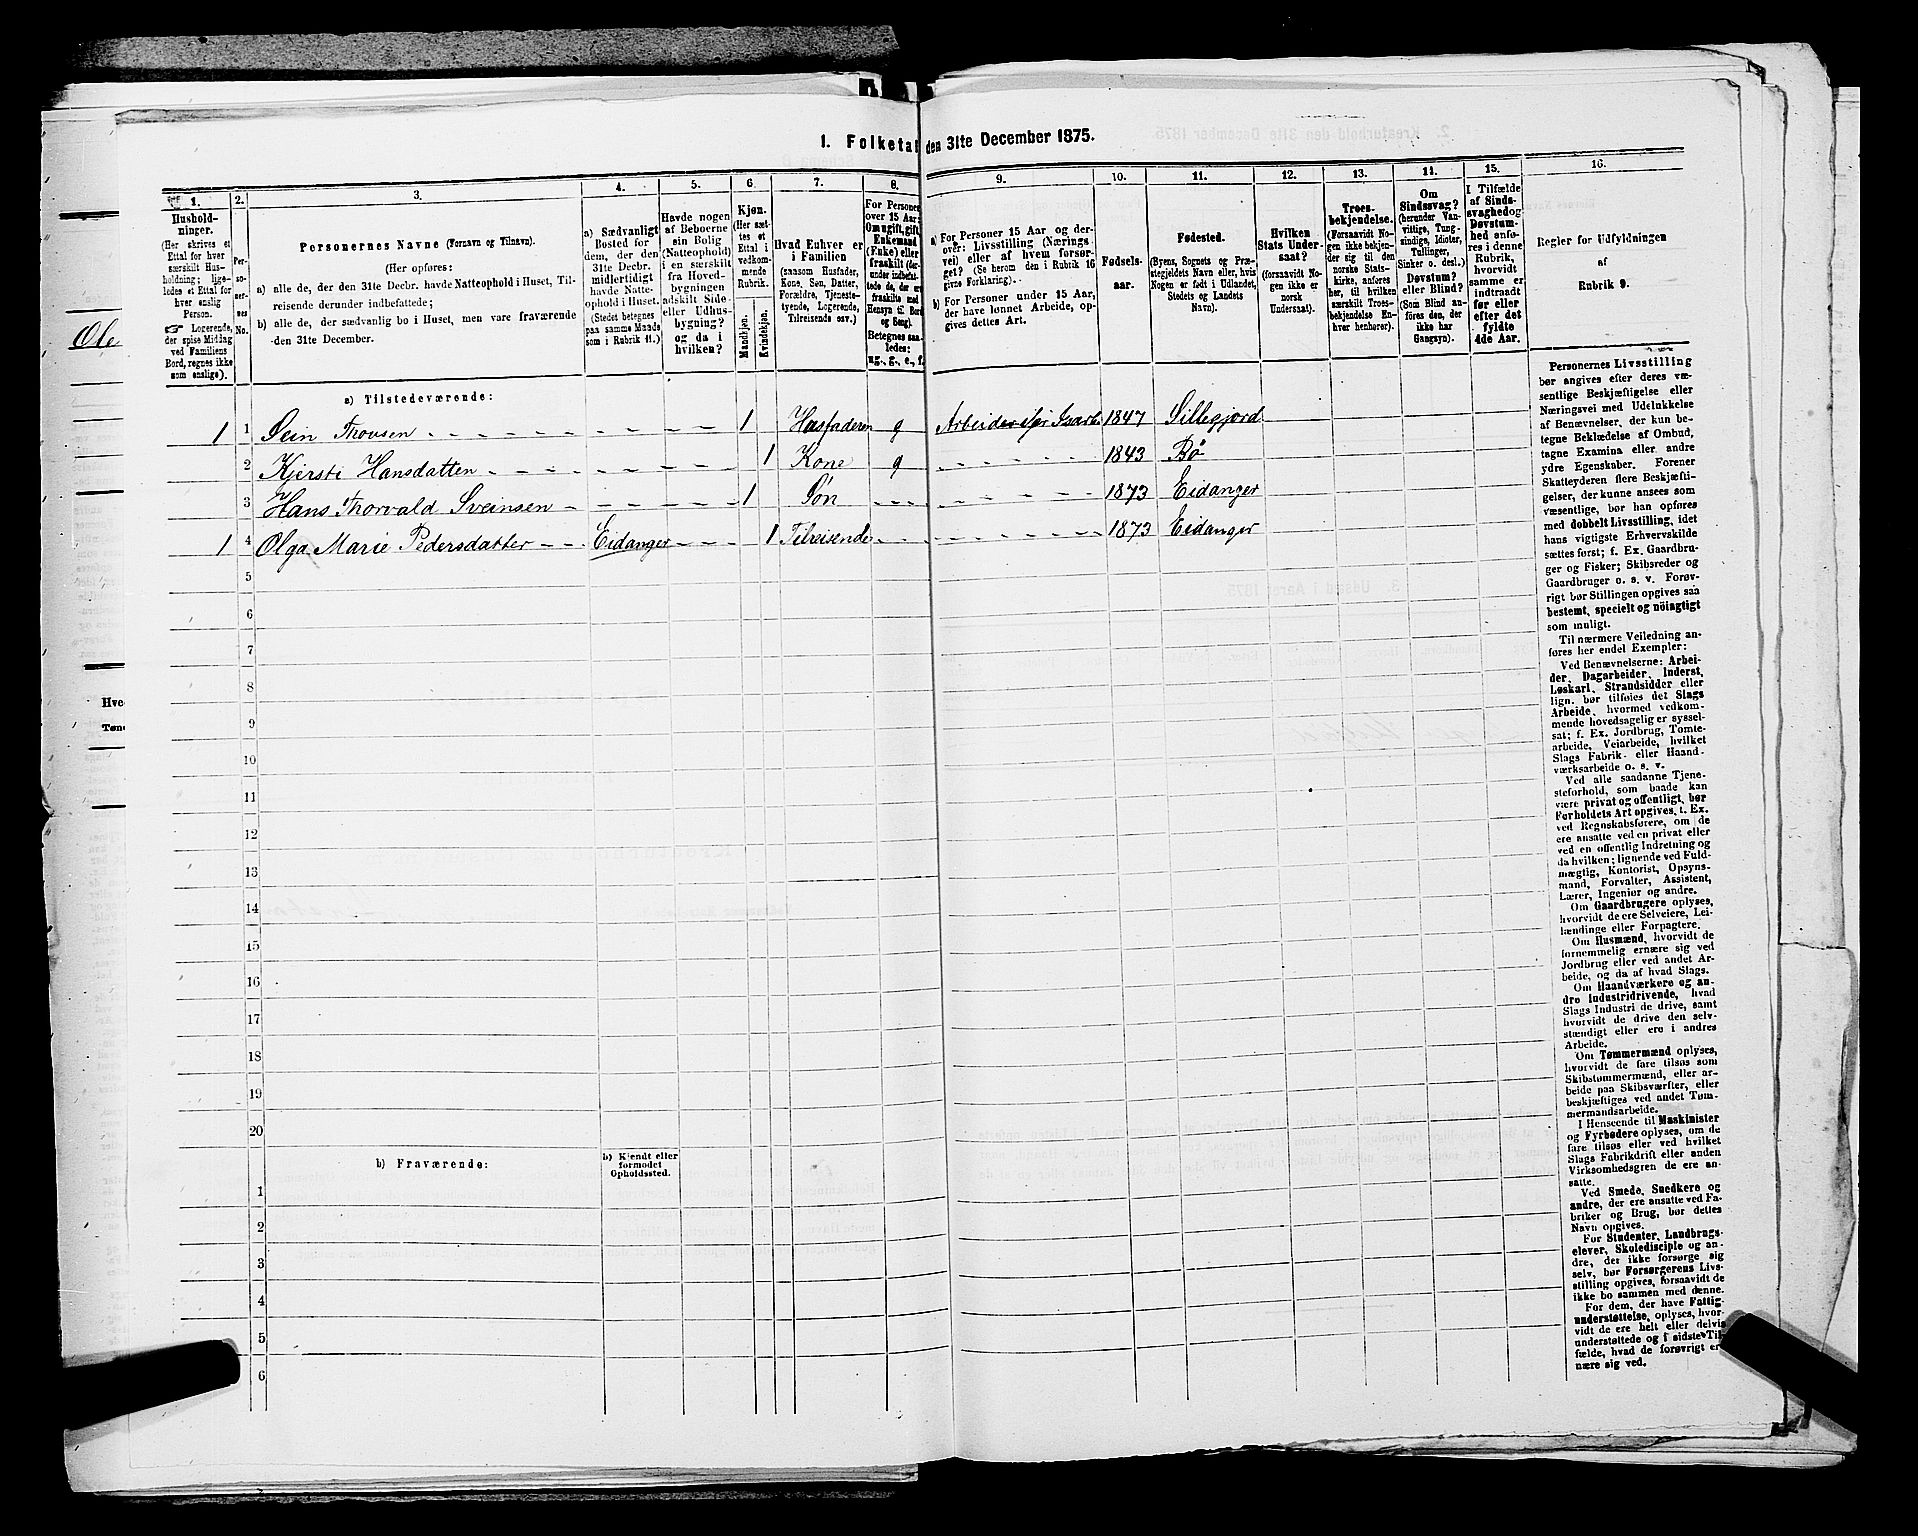 1. Folketal den 31te December 1875.
1. 2. 3. 4. 5. 6. 7. 8. 9. 10. 11. 12. 13. 14. 15. 16.
Hushold-
ninger.
(Her skrives et
Ettal for hver
særskilt Hus-
holdning; lige-
ledes et Ettal for
hver enslig
Person.
☞ Logerende,
der spise Middag
ved Familiens
Bord, regnes ikke
som enslige).
Per-
so-
ner-
nes
No.
Personernes Navne (Fornavn og Tilnavn).
(Her opføres:
a) alle de, der den 31te Decbr. havde Natteophold i Huset, Til-
reisende derunder indbefattede;
b) alle de, der sædvanlig bo i Huset, men vare fraværende
den 31te December.
a) Sædvanligt
Bosted for
dem, der den
31te Decbr.
midlertidigt
havde Natte-
ophold i Huset.
(Stedet betegnes
paa samme Maade
som i Rubrik 11.)
Havde nogen
af Beboerne
sin Bolig
(Natteophold)
i en særskilt
fra Hoved-
bygningen
adskilt Side-
eller Udhus-
bygning?
og da i
hvilken?
Kjøn.
(Her sæt-
tes et
Ettal i
vedkom-
mende
Rubrik.
Mandkjøn.
Kvindekjøn.
Hvad Enhver er
i Familien
(saasom Husfader,
Kone, Søn, Datter,
Forældre, Tjeneste-
tyende, Logerende,
Tilreisende osv.)
For Personer
over 15 Aar:
Om ugift, gift,
Enkemand
(Enke) eller
fraskilt (der-
under indbefat-
tede de, der ere
fraskilte med
Hensyn til Bord
og Seng).
Betegnes saa-
ledes:
ug., g., e., f.
a) For Personer 15 Aar og der-
over: Livsstilling (Nærings-
vei) eller af hvem forsør-
get? (Se herom den i Rubrik 16
givne Forklaring).
b) For Personer under 15 Aar,
der have lønnet Arbeide, op-
gives dettes Art.
Fødsels-
aar.
Fødested.
(Byens, Sognets og Præ-
stegjeldets Navn eller, hvis
Nogen er født i Udlandet,
Stedets og Landets
Navn).
Hvilken
Stats Under-
saat?
(forsaavidt No-
gen ikke er
norsk
Undersaat).
Troes-
bekjendelse.
(Forsaavidt No-
gen ikke bekjen-
der sig til den
norske Stats-
kirke, anføres
her, til hvilken
særskilt Troes-
bekjendelse En-
hver henhører).
Om
Sindssvag?
(herunder Van-
vittige, Tung-
sindige, Idioter,
Tullinger,
Sinker o. desl.)
Døvstum?
eller Blind?
(Som Blind an-
føres den, der
ikke har
Gangsyn).
I Tilfælde
af Sinds-
svaghed og
Døvstum-
hed anfø-
res i denne
Rubrik,
hvorvidt
samme er
indtraadt
før eller
efter det
fyldte
4de Aar.
Regler for Udfyldningen
af
Rubrik 9.
a) Tilstedeværende:
1 1 Sein Thovsen 1 Husfaderen g 1847 Sillegjord
2 Kjersti Hansdatten 1 Kone g 1843 Bø
3 Hans Thorvald Sveinsen 1 Søn 1873 Eidanger
1 4 Olga Marie Pedersdatter Eidanger 1 Tilreisende 1873 Eidanger
5
6
7
8
9
10
11
12
13
14
15
16
17
18
19
20
b) Fraværende:
b) Kjendt eller
formodet
Opholdssted.
1
2
3
4
5
6
Personernes Livsstilling
bør angives efter deres væ-
sentlige Beskjæftigelse eller
Næringsvei med Udelukkelse
af Benævnelser, der kun be-
tegne Beklædelse af Ombud,
tagne Examina eller andre
ydre Egenskaber. Forener
Skatteyderen flere Beskjæfti-
gelser, der kunne ansees som
væsentlige, bør han opføres
med dobbelt Livsstilling, idet
hans vigtigste Erhvervskilde
sættes først; f. Ex. Gaardbru-
ger og Fisker; Skibsreder og
Gaardbruger o. s. v. Forøv-
rigt bør Stillingen opgives saa
bestemt, specielt og nöiagtigt
som muligt.
Til nærmere Veiledning an-
føres her endel Exempler:
Ved Benævnelserne: Arbei-
der, Dagarbeider, Inderst,
Løskarl, Strandsidder eller
lign. bør tilføies det Slags
Arbeide, hvormed vedkom-
mende hovedsagelig er syssel-
sat; f. Ex. Jordbrug, Tomte-
arbeide, Veiarbeide, hvilket
Slags Fabrik- eller Haand-
værksarbeide o. s. v.
Ved alle saadanne Tjene-
steforhold, som baade kan
være privat og offentligt, bør
Forholdets Art opgives, t. Ex.
ved Regnskabsførere, om de
ere ansatte ved en privat eller
ved en offentlig Indretning og
da hvilken; lignende ved Fuld-
mægtig, Kontorist, Opsyns-
mand, Forvalter, Assistent,
Lærer, Ingeniør og andre.
Om Gaardbrugere oplyses,
hvorvidt de ere Selveiere, Lei-
lændinge eller Forpagtere.
Om Husmænd, hvorvidt de
fornemmelig ernære sig ved
Jordbrug eller ved andet Ar-
beide, og da af hvad Slags.
Om Haandværkere og an-
dre Industridrivende, hvad
Slags Industri de drive, samt
hvorvidt de drive den selv-
stændigt eller ere i andres
Arbeide.
Om Tømmermænd oplyses,
hvorvidt de fare tilsøs som
Skibstømmermænd, eller ar-
beide paa Skibsværfter, eller
beskjæftiges ved andet Tøm-
mermandsarbeide.
I Henseende til Maskinister
og Fyrbødere oplyses, om de
fare tilsøs eller ved hvilket
Slags Fabrikdrift eller anden
Virksomhedsgren de ere an-
satte.
Ved Smede, Snedkere og
andre, der ere ansatte ved Fa-
briker og Brug, bør dettes
Navn opgives.
For Studenter, Landbrugs-
elever, Skoledisciple og an-
dre, der ikke forsørge sig
selv, bør Forsørgerens Livs-
stilling opgives, forsaavidt de
ikke bo sammen med denne.
For dem, der have Fattig-
understøttelse, oplyses, hvor-
vidt de ere helt eller delvis
understøttede og i sidste Til-
fælde, hvad de forøvrigt er-
nære sig ved.
Ole
Hve